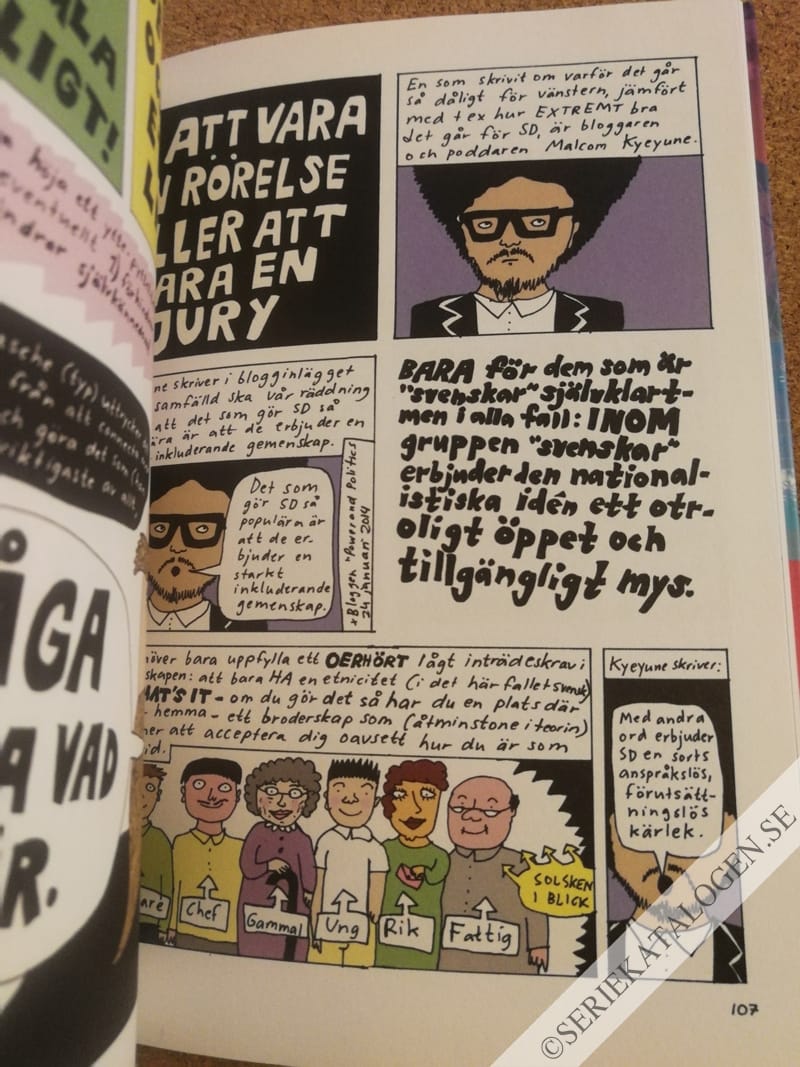 LIGT!
ATT VARA
RÖRELSE
LLER ATT
ARA EN
JURY
En som skrivit om varför det går
så dåligt för vänstern, jämfört
med tex hur EXTREMT bra
det går för SD, är bloggaren
och poddaren Malcom Kyeyune.
ne skriver i blogginlägget
samfälld ska vår räddning
att det som gör SD så
ära är att de erbjuder en
inkluderande gemenskap.
Det som
gör SD så
populära är
att de er-
bjuder en
starkt
inkluderande
gemenskap.
*Bloggen "Power and Politics"
24 januari 2014
BARA för dem som är
"svenskar" självklart-
men i alla fall: INOM
gruppen "svenskar"
erbjuder den national-
istiska idén ett otr-
oligt öppet och
tillgängligt mys.
höver bara uppfylla ett OERHÖRT lågt inträdeskrav i
skapen: att bara HA en etnicitet (i det här fallet svensk)
HAT'S IT - om du gör det så har du en plats där
hemma - ett broderskap som (åtminstone i teorin)
ner att acceptera dig oavsett hur du är som
id.
are
Chef
Gammal
Ung
Rik
Fattig
SOLSKEN
I BLICK
Kyeyune skriver:
Med andra
ord erbjuder
SD en sorts
anspråkslös,
förutsätt-
ningslös
kärlek.
107
ÅGA
A VAD
R.
©SERIEKATALOGEN.SE